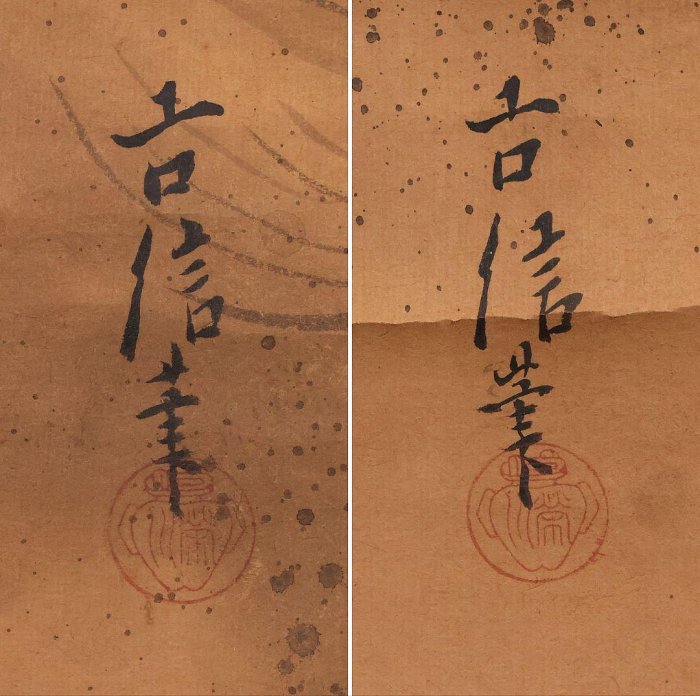 吉信筆
吉信筆